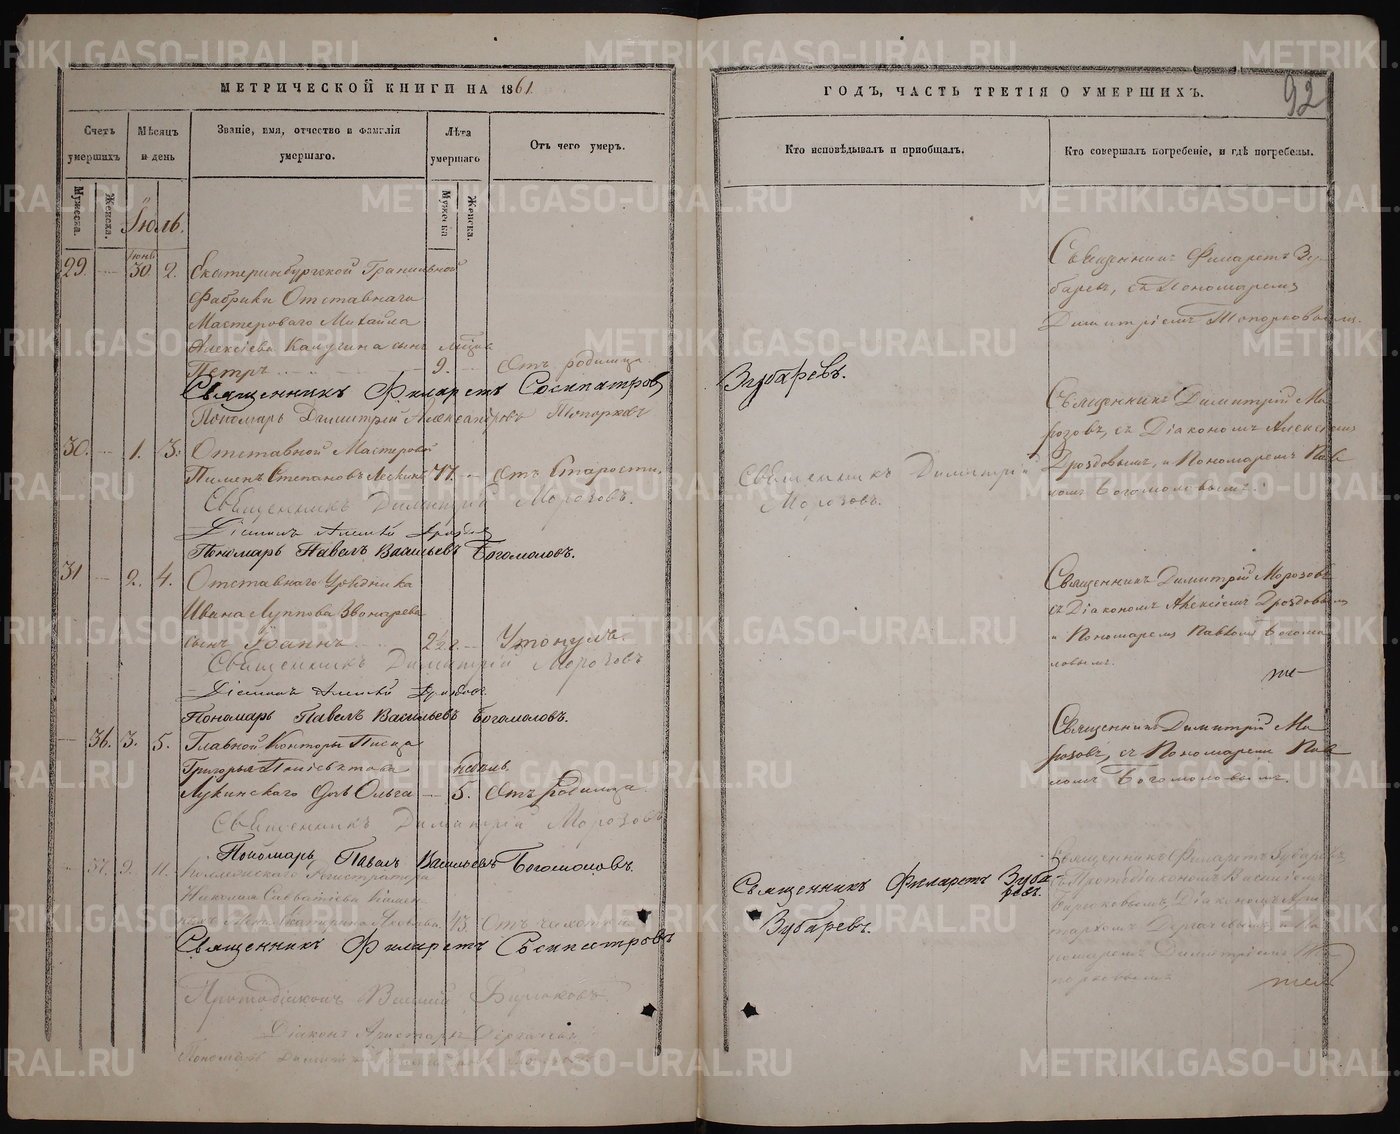 МЕТРИЧЕСКОЙ КНИГИ НА 1861
Счетъ умершихъ
Мѣсяцъ и день
Званіе, имя, отчество и фамилія умершаго.
Лѣта умершаго
Отъ чего умеръ.
Мужеска.
Женска.
Мужеска
Женска.
Іюль.
Іюнь
29 30 2. Екатеринбургской Гранильной
Фабрики Отставнаго
Мастероваго Михаила
Алексѣева Калугина сынъ
Петръ 9. Отъ родимца.
Священникъ Филаретъ Сосипатровъ
Пономарь Димитрій Александровъ Топорковъ
30. 1. 3. Отставной Мастеровой
Пименъ Степановъ 77. Отъ Старости.
Священникъ Димитрій Морозовъ.
Діаконъ Алексѣй Дроздовъ
Пономарь Павелъ Васильевъ Богомоловъ.
31 2. 4. Отставнаго Урядника
Ивана Луппова Звонарева
сынъ Іоаннъ 2½ г. Утонулъ
Священникъ Димитрій Морозовъ
Діаконъ Алексѣй Дроздовъ
Пономарь Павелъ Васильевъ Богомоловъ.
36. 3. 5. Главной Конторы Писца
Григорья
Лукинскаго дочь Ольга 5. Отъ родимца
Священникъ Димитрій Морозовъ
Пономарь Павелъ Васильевъ Богомоловъ.
37. 9. 11. Регистратора
Николая Савватіева
жена Екатерина 43. Отъ чахотки
Священникъ Филаретъ Сосипатровъ
Протодіаконъ Василій Бирюковъ
Діаконъ Аристархъ Дергачевъ
Пономарь
ГОДЪ, ЧАСТЬ ТРЕТІЯ О УМЕРШИХЪ.
92
Кто исповѣдывалъ и приобщалъ.
Кто совершалъ погребеніе, и гдѣ погребены.
Священникъ Филаретъ Зу-
баревъ, съ Пономаремъ
Димитріемъ Топорковымъ.
Зубаревъ.
Священникъ Димитрій Мо
розовъ, съ Діакономъ Алексѣемъ
Дроздовымъ, и Пономаремъ Пав
ломъ Богомоловымъ.
Священникъ Димитрій
Морозовъ.
Священникъ Димитрій Морозовъ
съ Діакономъ Алексѣемъ Дроздовымъ
и Пономаремъ Павломъ Богомо
ловымъ.
Священникъ Димитрій Мо
розовъ, съ Пономаремъ Пав
ломъ Богомоловымъ.
Священникъ Филаретъ Зуба
ревъ.
Зубаревъ.
Священникъ Филаретъ Зубаревъ,
съ Протодіакономъ Василіемъ
Бирюковымъ, Діакономъ Ари
стархомъ Дергачевымъ и По
номаремъ Димитріемъ То
порковымъ
METRIKI.GASO-URAL.RU